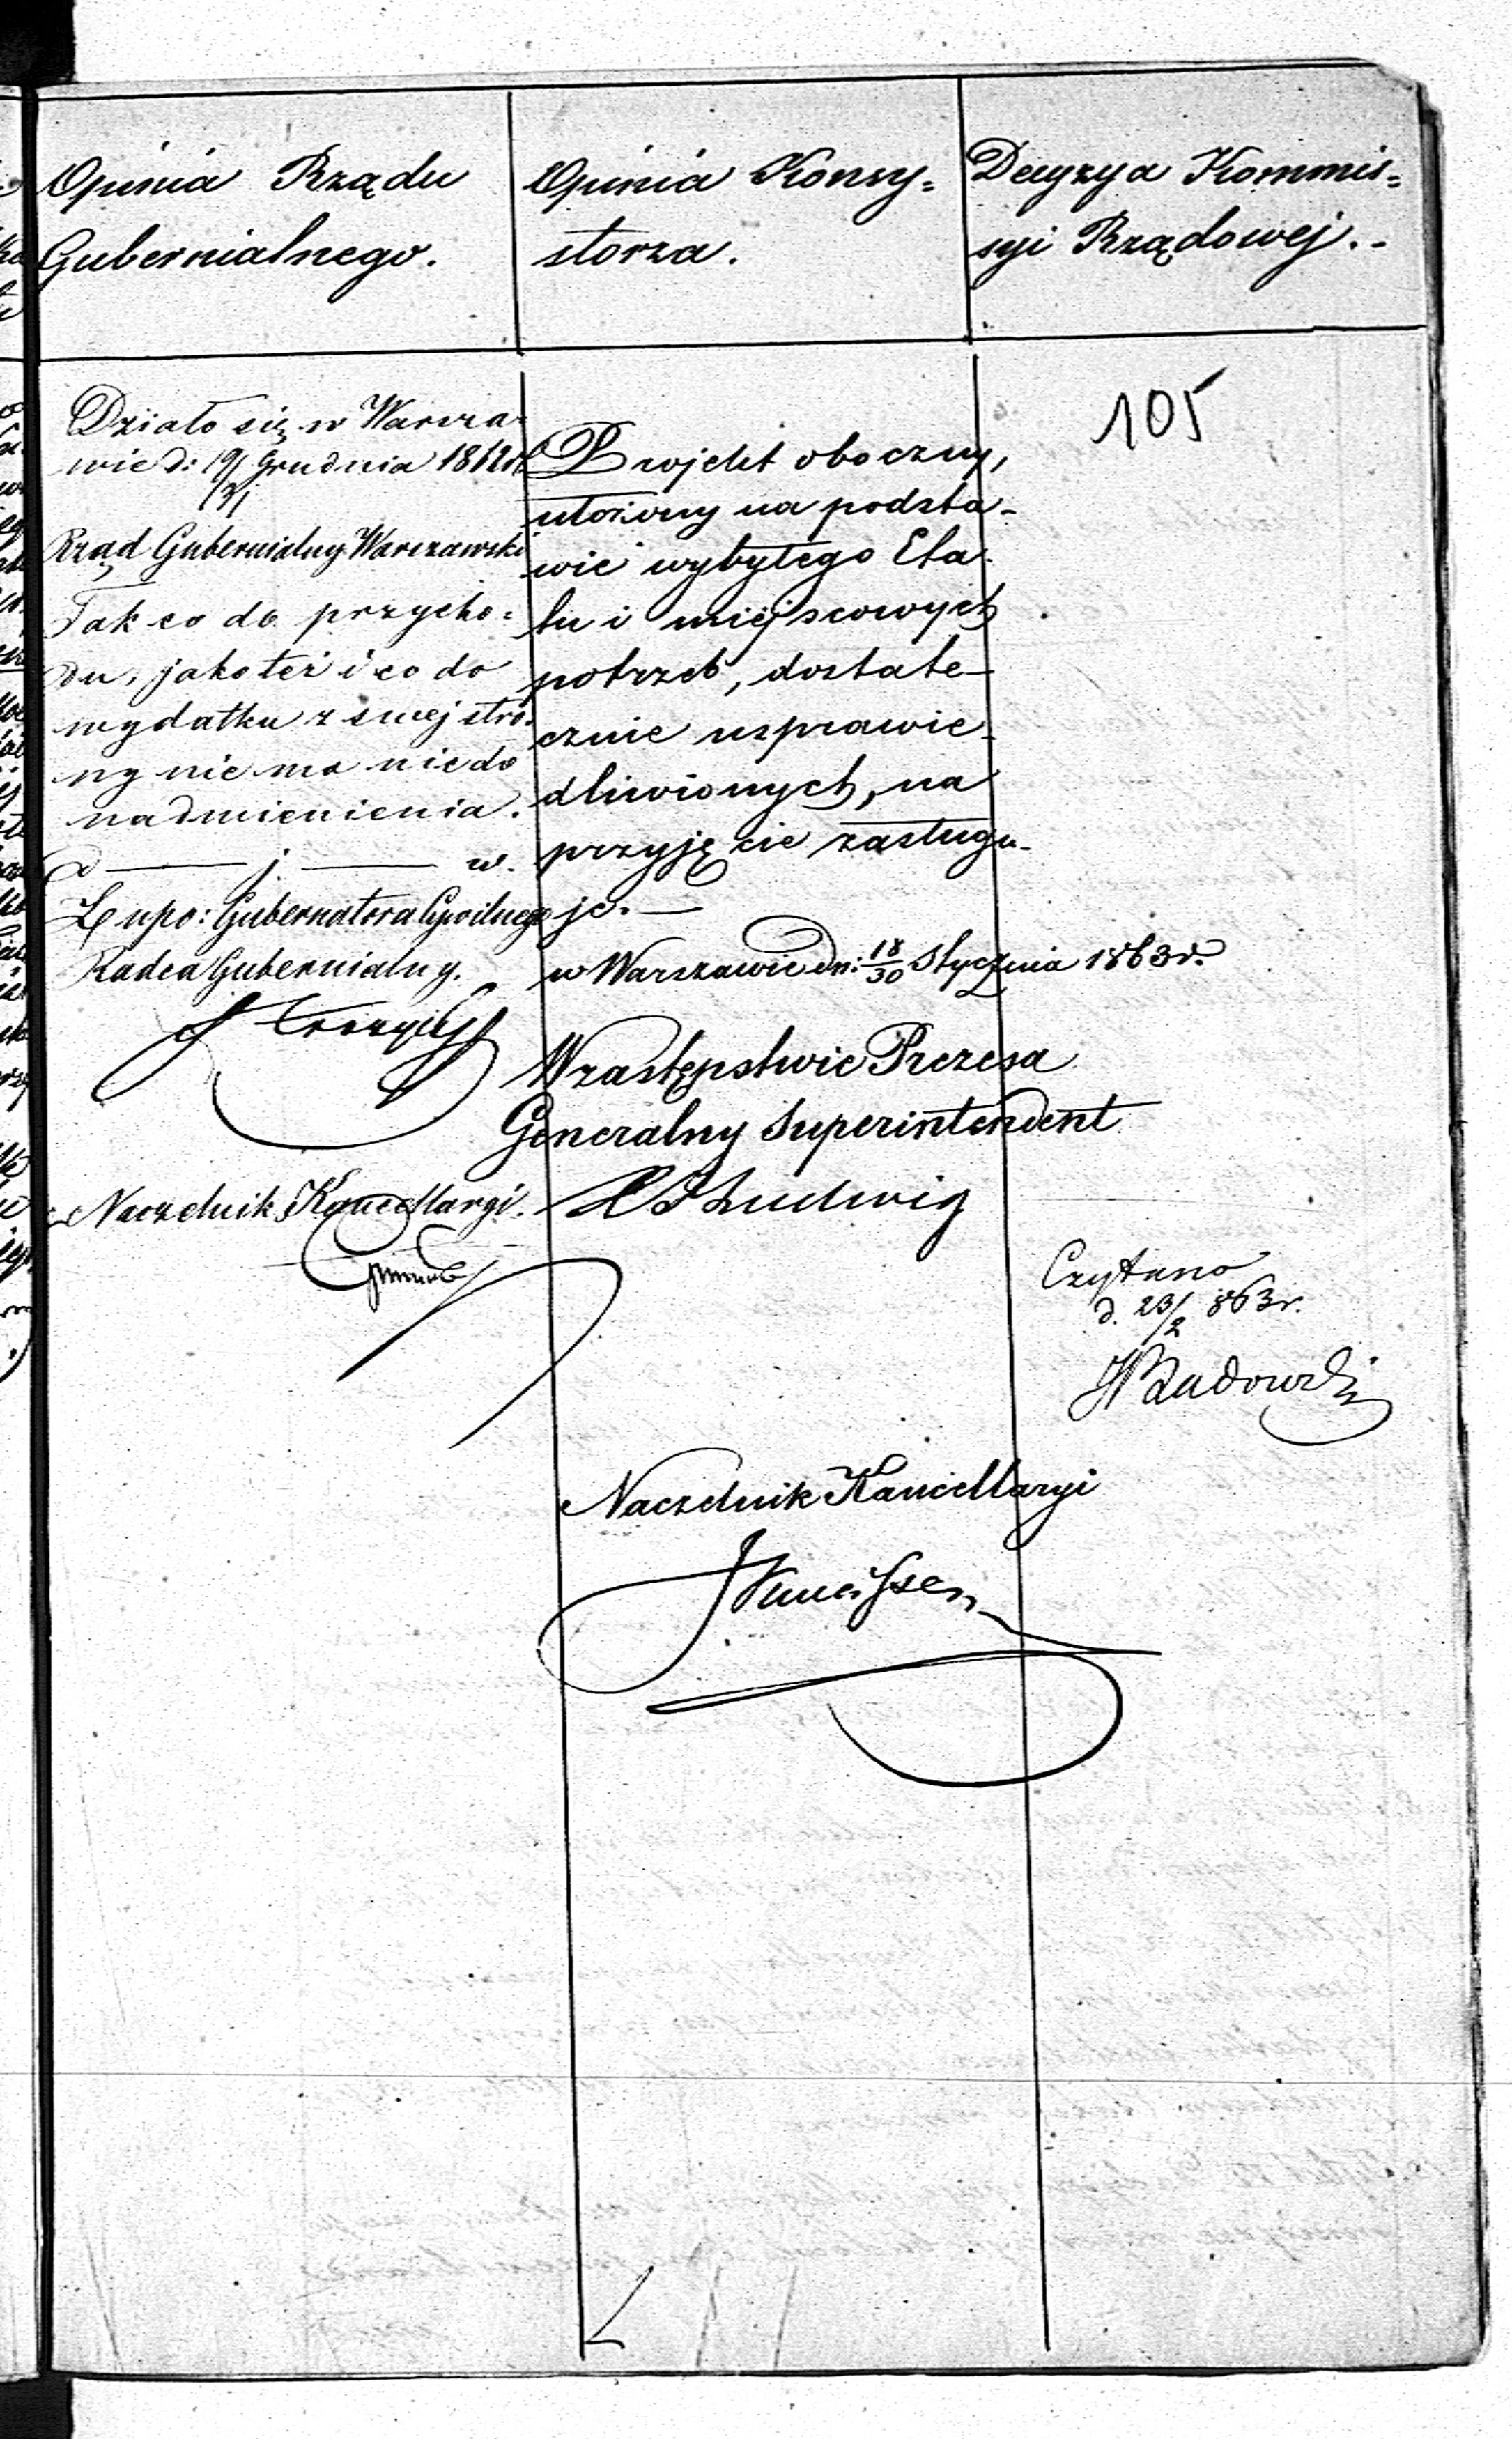 Opinia Rządu
Gubernialnego.
Opinia Konsy=
storza.
Decyzya Kommis=
syi Rządowej.-
105
Działo się w Warsza-
wie d: 19/31 Grudnia 1862 r
Rząd Gubernialny Warszawski
Tak co do przycho=
du, jako też i co do
wydatku z swej stro-
ny nie ma nic do
nadmienienia.
j. w.
Z upo: Gubernatora Cywilnego
Radca Gubernialny.
Naczelnik Kancellaryi.
Projekt oboczny,
ułożony na podsta-
wie wybyłego Eta-
tu i miejscowych
potrzeb, dostate-
cznie usprawie-
dliwionych, na
przyjęcie zasługu-
je.-
w Warszawie dn: 18/30 Stycznia 1863 r.
W zastępstwie Prezesa
Generalny Superintendent
Ludwig
Naczelnik Kancellaryi
Czytano
d. 23/2 863 r.